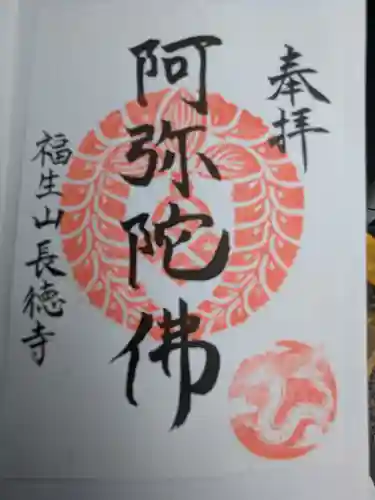 奉拝
阿弥陀佛
福生山長徳寺